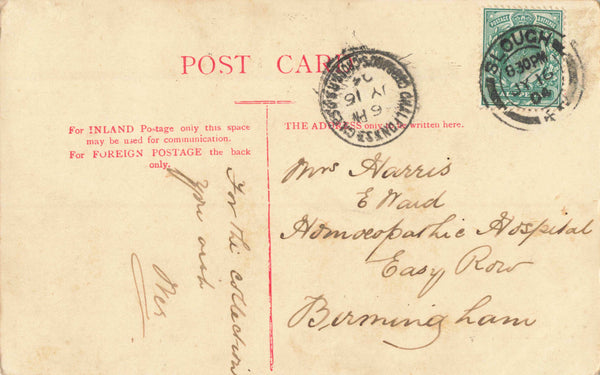 POST CARD
For INLAND Postage only this space
may be used for communication.
For FOREIGN POSTAGE the back
only.
THE ADDRESS only to be written here.
SLOUGH
8.30 PM
16
04
CHALFONT
6 PM
16
04
POSTAGE
For the collection
you wish
Mrs Harris
E Ward
Homœopathic Hospital
Easy Row
Birmingham